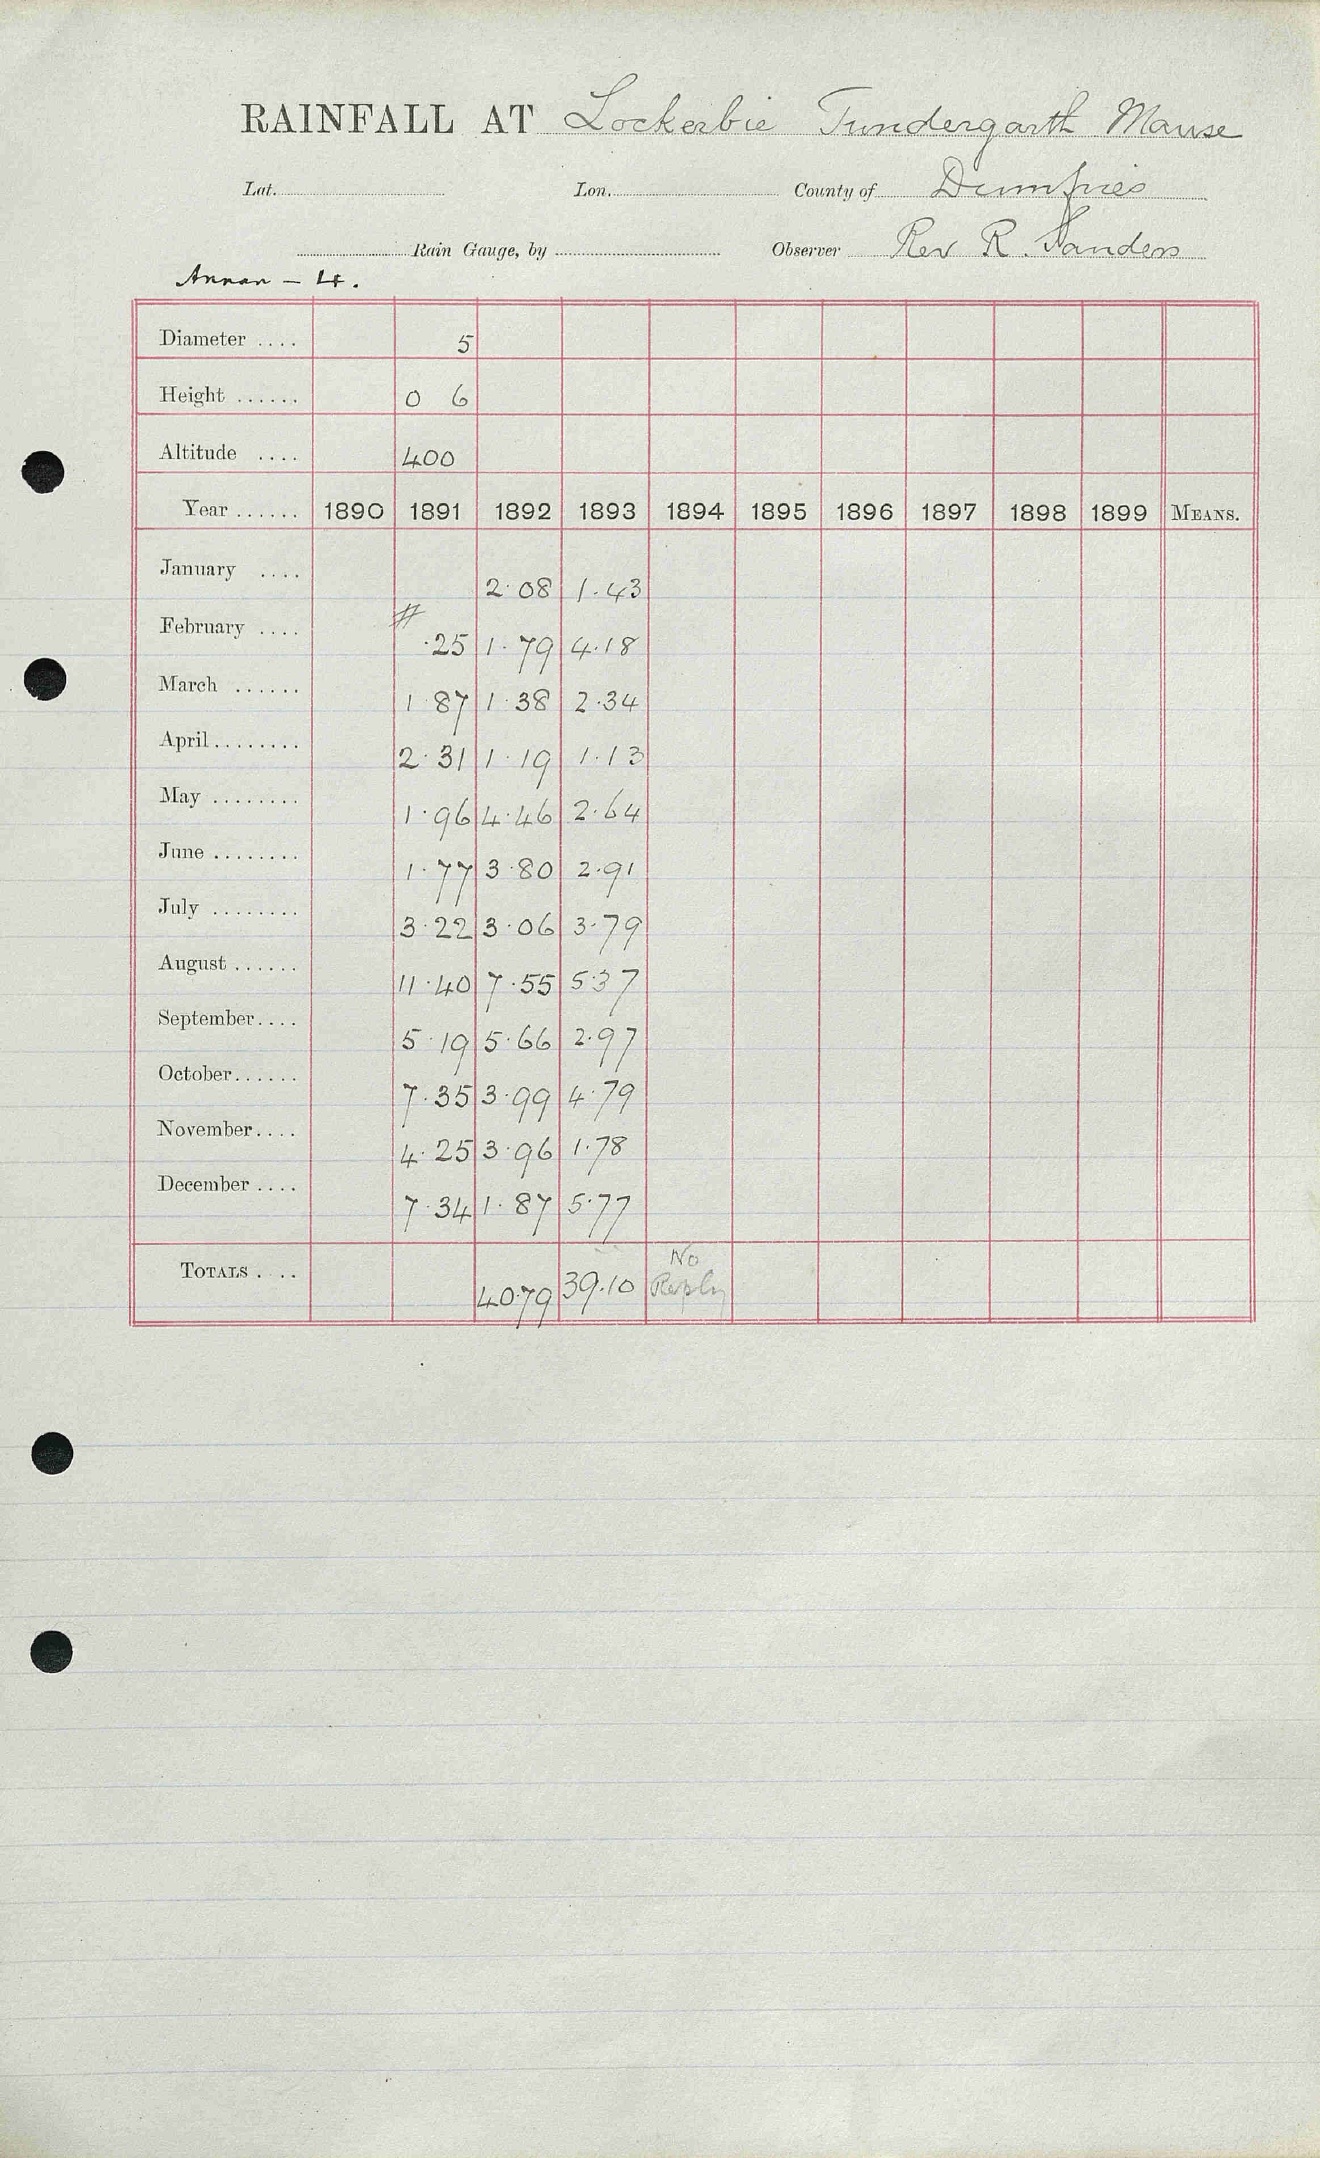 RAINFALL AT Lockerbie Tundergarth Manse
Lat. Lon. County of Dumfries
Rain Gauge, by Observer Rev R. Sanders
Annan - 4.
Diameter .... 5
Height ...... 0 6
Altitude .... 400
Year ...... 1890 1891 1892 1893 1894 1895 1896 1897 1898 1899 MEANS.
January .... 2.08 1.43
February .... # .25 1.79 4.18
March ...... 1.87 1.38 2.34
April........ 2.31 1.19 1.13
May ........ 1.96 4.46 2.64
June ........ 1.77 3.80 2.91
July ........ 3.22 3.06 3.79
August ...... 11.40 7.55 5.37
September.... 5.19 5.66 2.97
October...... 7.35 3.99 4.79
November.... 4.25 3.96 1.78
December .... 7.34 1.87 5.77
TOTALS .... 40.79 39.10 No Reply